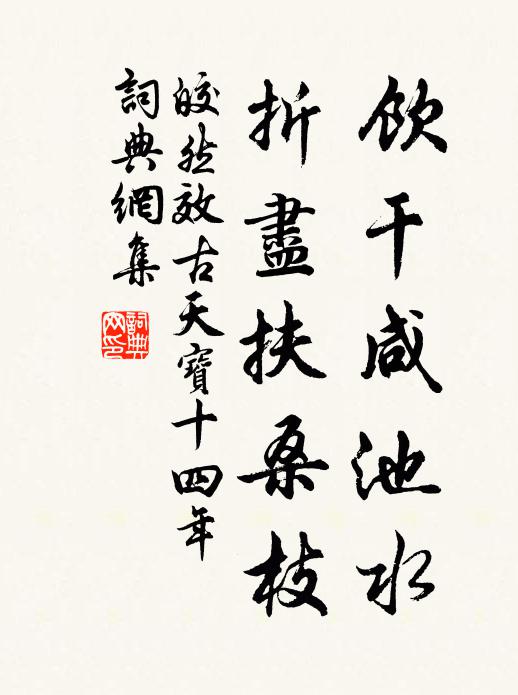 飲干咸池水
折盡扶桑枝
皎然效古天寶十四年
詞典網集
詞典网印